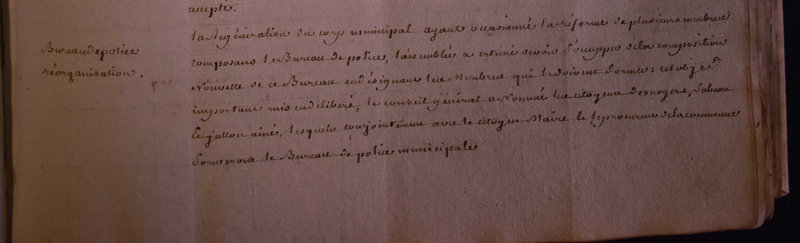 accepté.
la Régénération du corps municipal ayant occasionné la réforme de plusieurs membres
Bureau de police
composans le Bureau de police, l'assemblée a estimé devoir s'occuper de la composition
réorganisation.
Nouvelle de ce Bureau en désignant les Membres qui le doivent former : cet objet
important mis en délibéré, le conseil général a Nommé les citoyens Desnoyers, Salmon
et jallon ainé, lesquels conjointement avec le citoyen Maire et le procureur de la commune
formeront le Bureau de police municipale